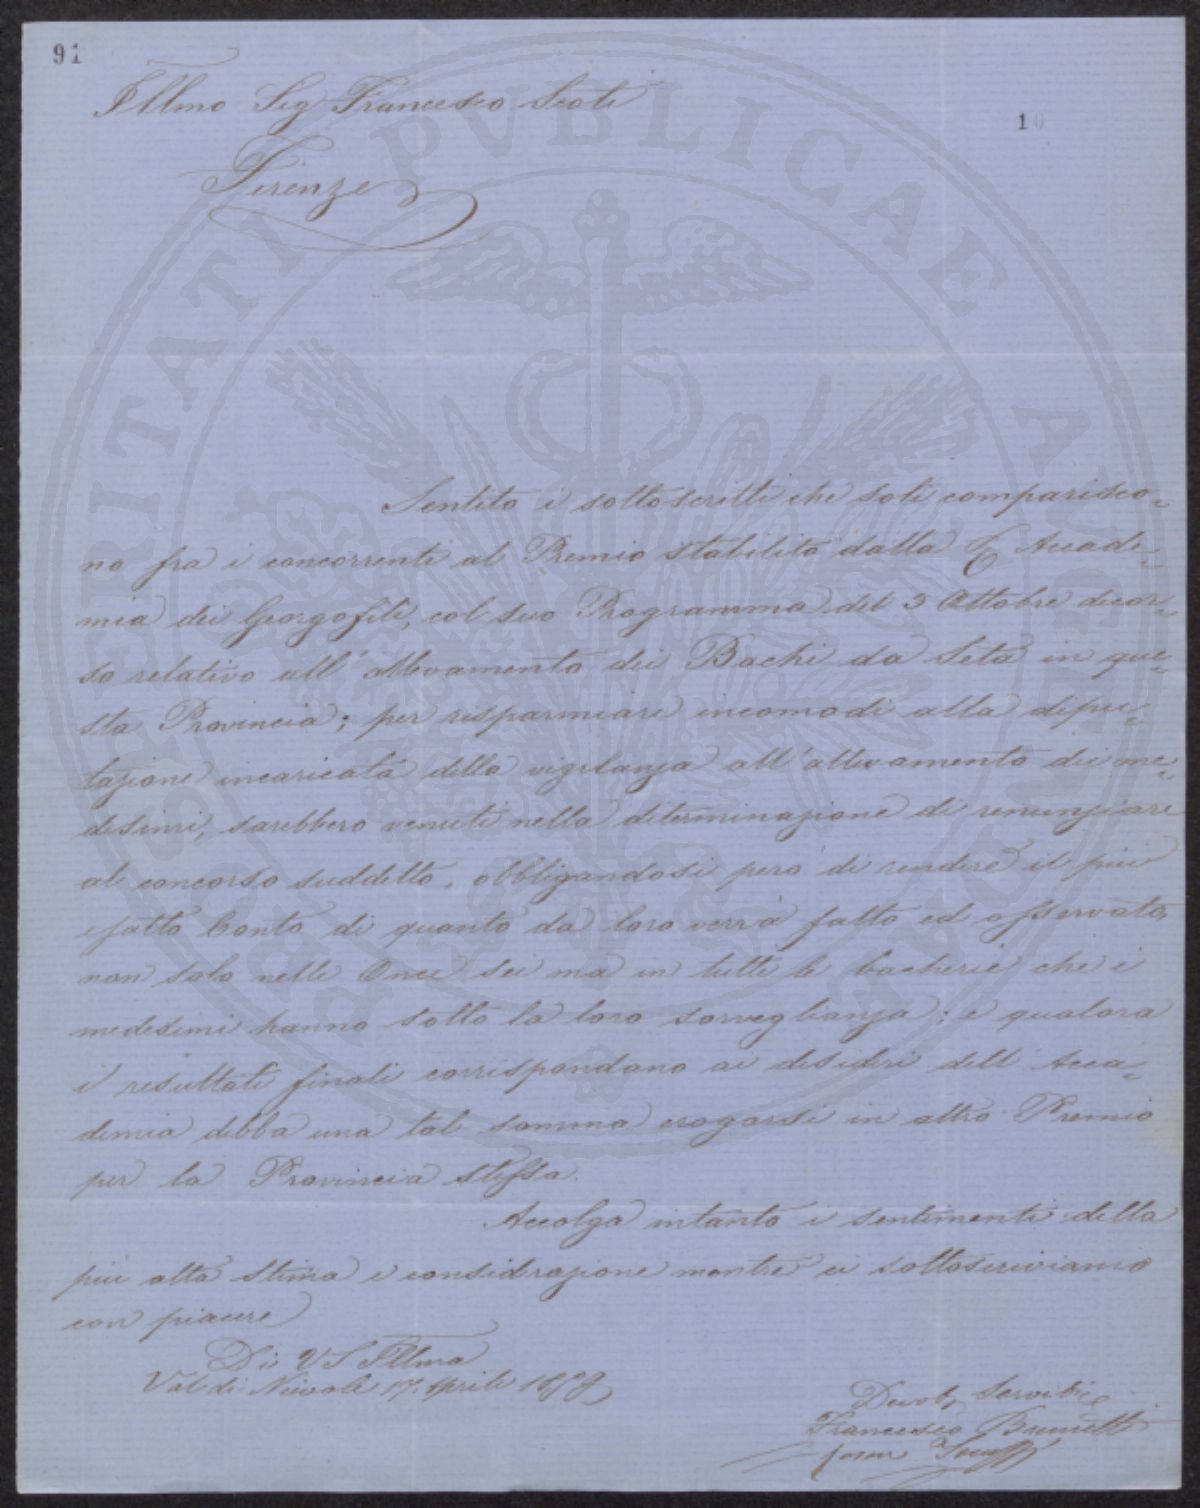 91
10
Illmo Sig Francesco Scoti
Firenze
Sentito i sottoscritti che soli comparisco=
no fra i concorrenti al Premio stabilito dalla Accade=
mia dei Georgofili, col suo Programma del 3 Ottobre decor=
so relativo all'allevamento dei Bachi da Seta in que=
sta Provincia; per risparmiare incomodi alla depu=
tazione incaricata della vigilanza all'allevamento dei me=
desimi, sarebbero venuti nella determinazione di renunziare
al concorso suddetto, obbligandosi però di rendere il più
esatto Conto di quanto da loro verrà fatto ed osservato,
non solo nelle Once sei ma in tutte le bacherie che i
medesimi hanno sotto la loro sorveglianza; e qualora
i resultati finali corrispondano ai desideri dell'Acca=
demia debba una tal somma erogarsi in altro Premio
per la Provincia stessa.
Accolga intanto i sentimenti della
più alta stima e considerazione mentre ci sottoscriviamo
con piacere
Di VS Illma
Val di Nievole 17. Aprile
Francesco Brunetti
PROSPERITATI PVBLICAE AVGENDAE